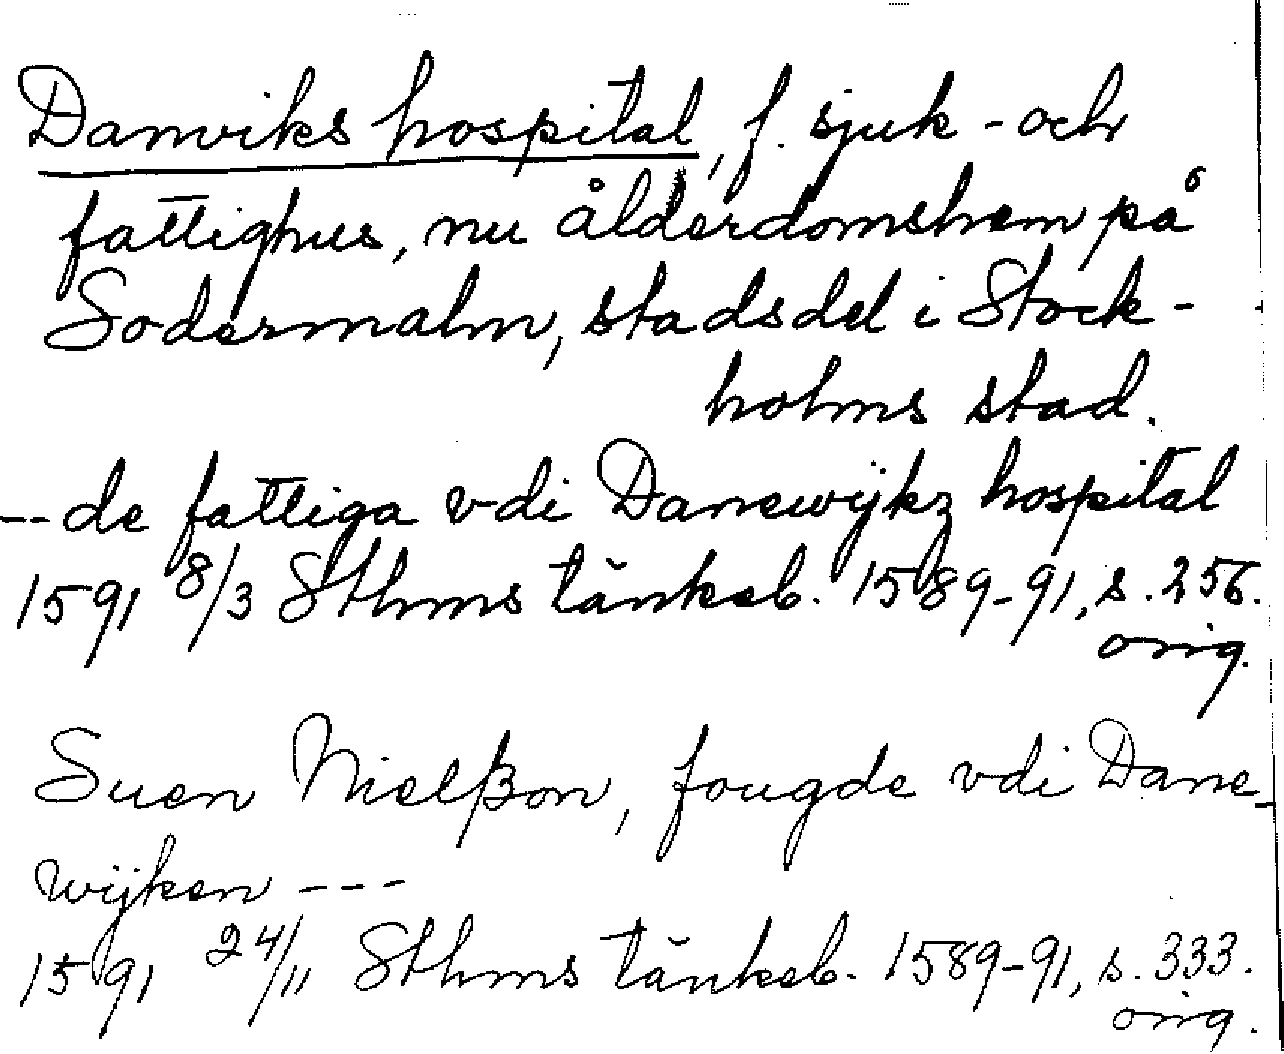 Danviks hospital, f. sjuk- och
fattighus, nu ålderdomshem på
Södermalm, stadsdel i Stock-
holms stad.
-- de fattiga vdi Danewijkz hospital
1591 8/3 Sthms tänkeb. 1589-91, s. 256.
orig.
Suen Nielßon, fougde vdi Dane-
wijken ---
1591 24/11 Sthms tänkeb. 1589-91, s. 333.
orig.